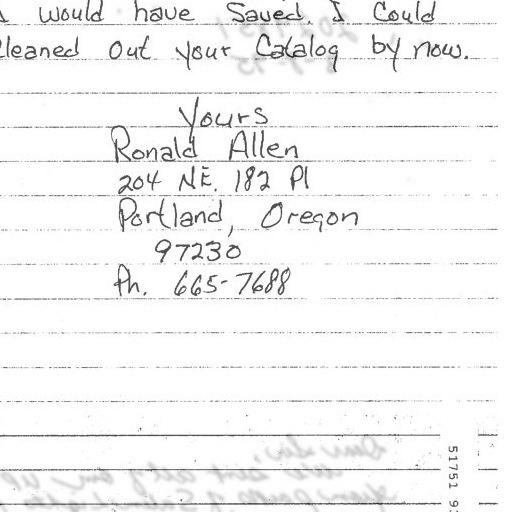 I would have Saved. I Could
Cleaned out your Catalog by now.
Yours
Ronald Allen
204 NE. 182 Pl
Portland, Oregon
97230
Ph. 665-7688
51751 9